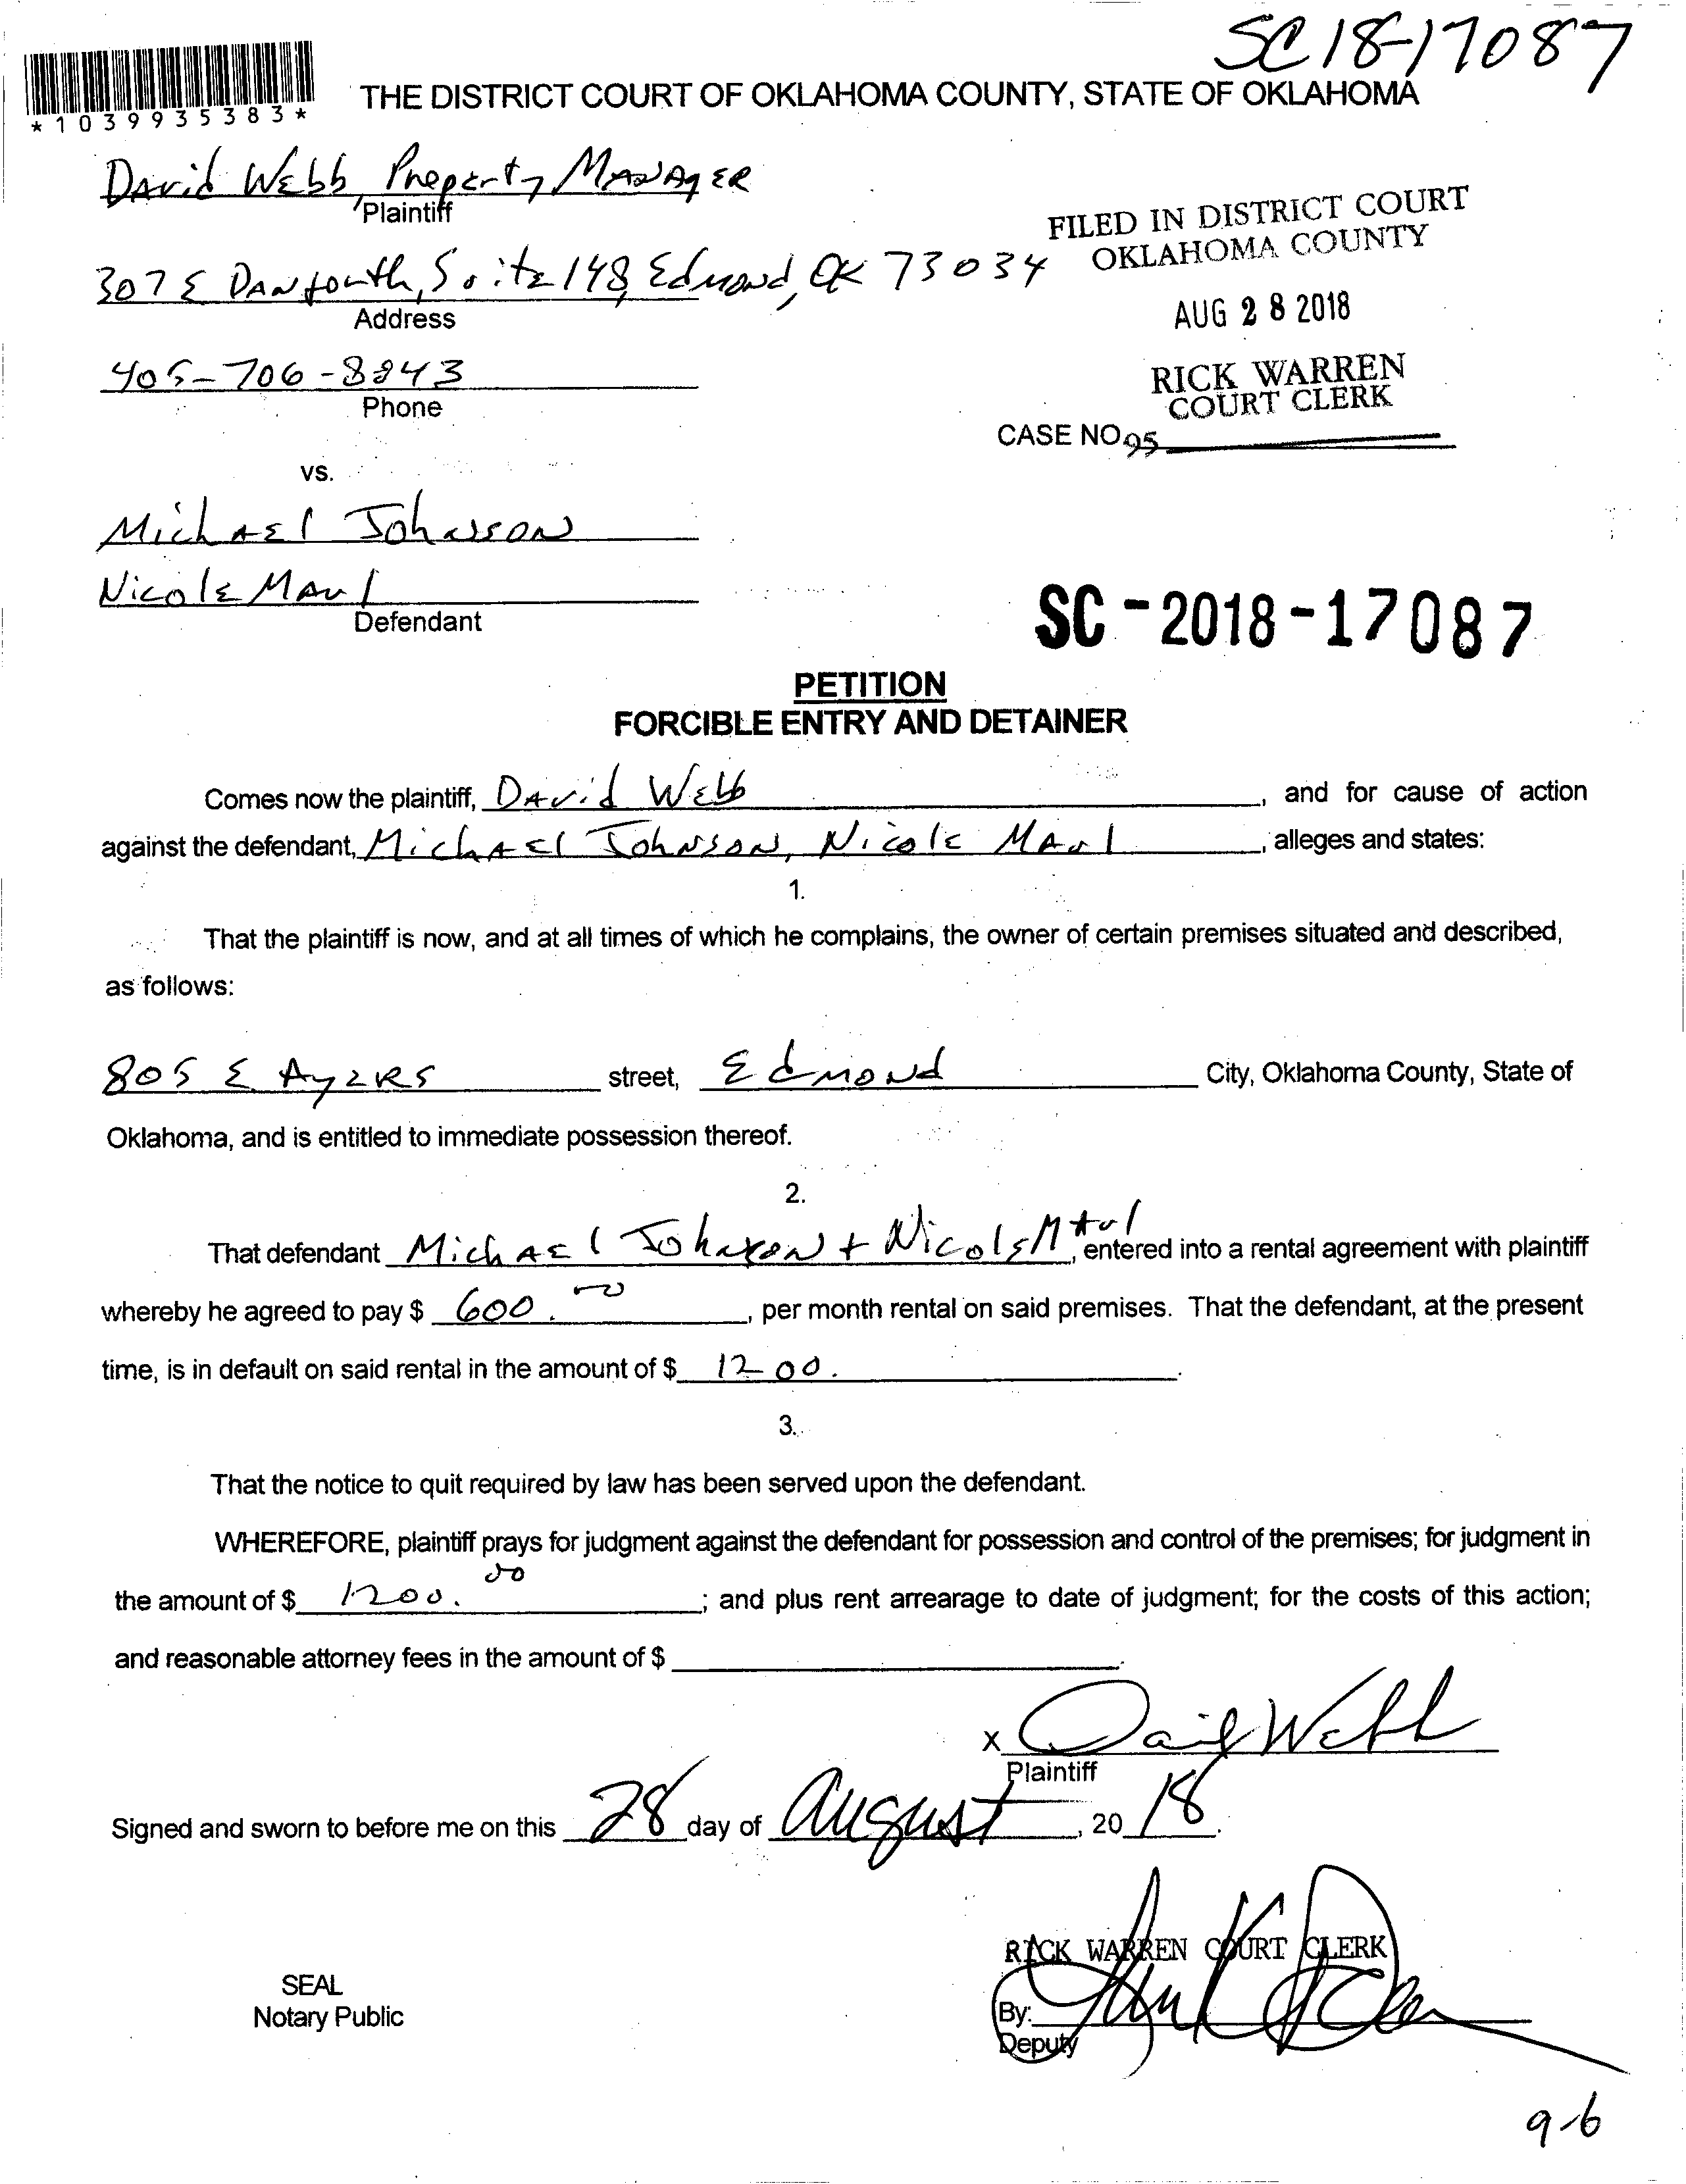 SC 18-17087
*1039935383*
THE DISTRICT COURT OF OKLAHOMA COUNTY, STATE OF OKLAHOMA
David Webb, Property Manager
Plaintiff
FILED IN DISTRICT COURT
OKLAHOMA COUNTY
307 E Danforth, Suite 148, Edmond, OK 73034
Address
AUG 28 2018
405-706-8843
Phone
RICK WARREN
COURT CLERK
CASE NO. 95
vs.
Michael Johnson
Nicole Maul
Defendant
SC-2018-17087
PETITION
FORCIBLE ENTRY AND DETAINER
Comes now the plaintiff, David Webb, and for cause of action
against the defendant, Michael Johnson, Nicole Maul, alleges and states:
1.
That the plaintiff is now, and at all times of which he complains, the owner of certain premises situated and described,
as follows:
805 E Ayers street, Edmond City, Oklahoma County, State of
Oklahoma, and is entitled to immediate possession thereof.
2.
That defendant Michael Johnson + Nicole Maul, entered into a rental agreement with plaintiff
whereby he agreed to pay $ 600.00, per month rental on said premises. That the defendant, at the present
time, is in default on said rental in the amount of $ 1200.
3.
That the notice to quit required by law has been served upon the defendant.
WHEREFORE, plaintiff prays for judgment against the defendant for possession and control of the premises; for judgment in
the amount of $ 1200.00; and plus rent arrearage to date of judgment; for the costs of this action;
and reasonable attorney fees in the amount of $
x David Webb
Plaintiff
Signed and sworn to before me on this 28 day of August, 2018.
RICK WARREN COURT CLERK
SEAL
Notary Public
By:
Deputy
9-6